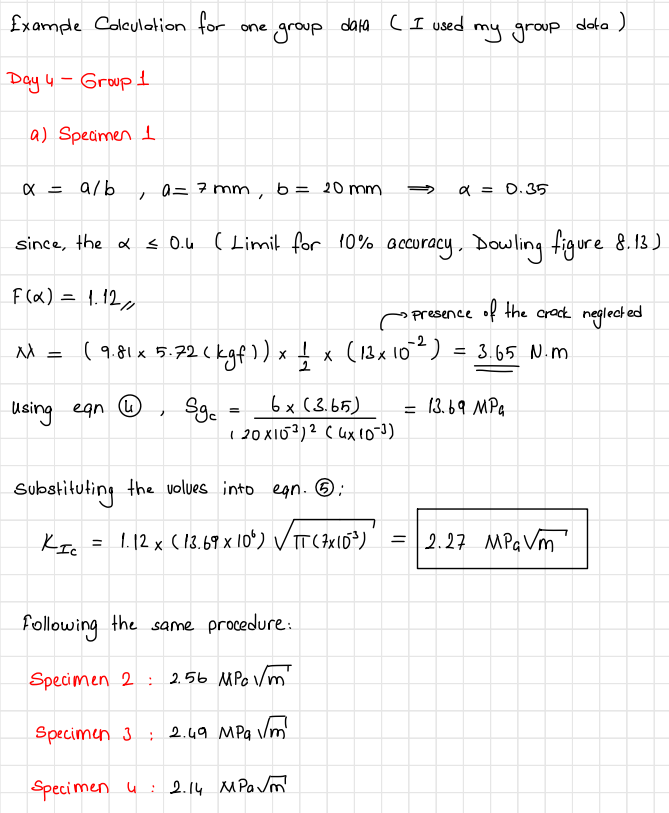 Example Calculation for one group data ( I used my group data )
Day 4 - Group 1
a) Specimen 1
α = a/b , a = 7 mm , b = 20 mm ⟹ α = 0.35
since, the α ≤ 0.4 ( Limit for 10% accuracy, Dowling figure 8.13 )
F(α) = 1.12 //
→ presence of the crack neglected
M = ( 9.81 x 5.72 (kgf) ) x 1/2 x ( 13 x 10^-2 ) = 3.65 N.m
using eqn ④ , Sgc = 6 x (3.65) / (20x10^-3)^2 (4x10^-3) = 13.69 MPa
Substituting the values into eqn. ⑤:
K_Ic = 1.12 x (13.69 x 10^6) √(π(7x10^-3)) = 2.27 MPa√m
Following the same procedure:
Specimen 2 : 2.56 MPa √m
Specimen 3 : 2.49 MPa √m
Specimen 4 : 2.14 MPa√m